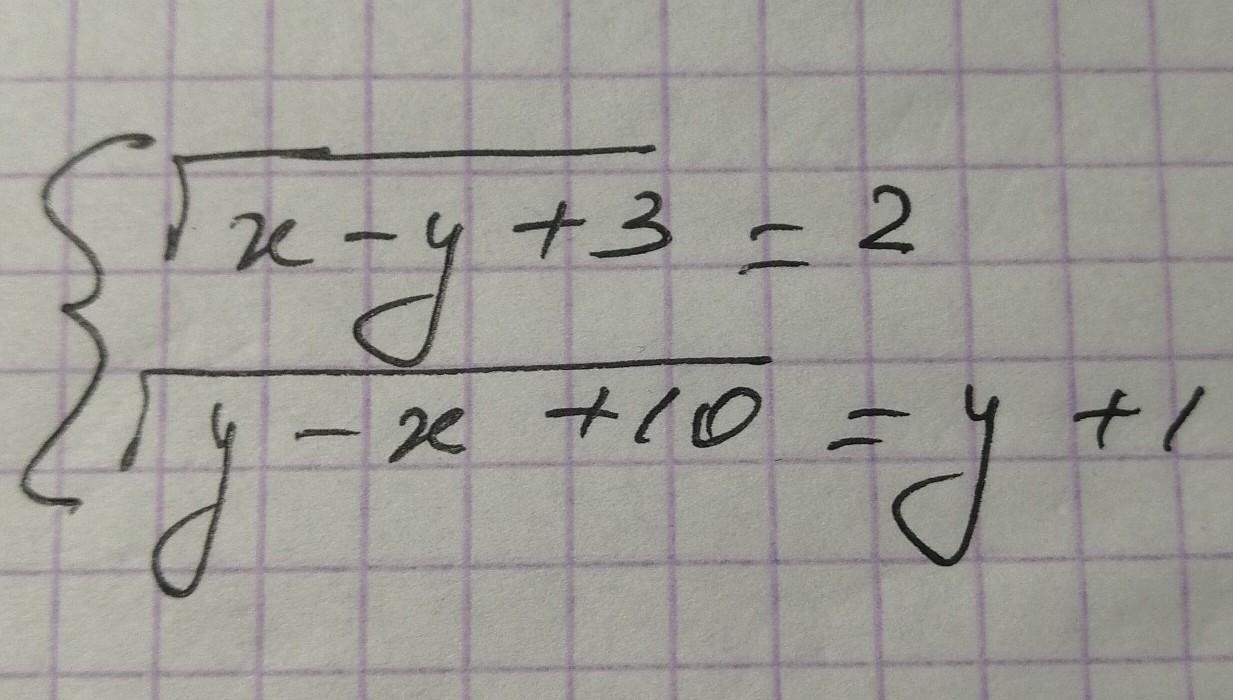 √(x - y + 3) = 2
√(y - x + 10) = y + 1